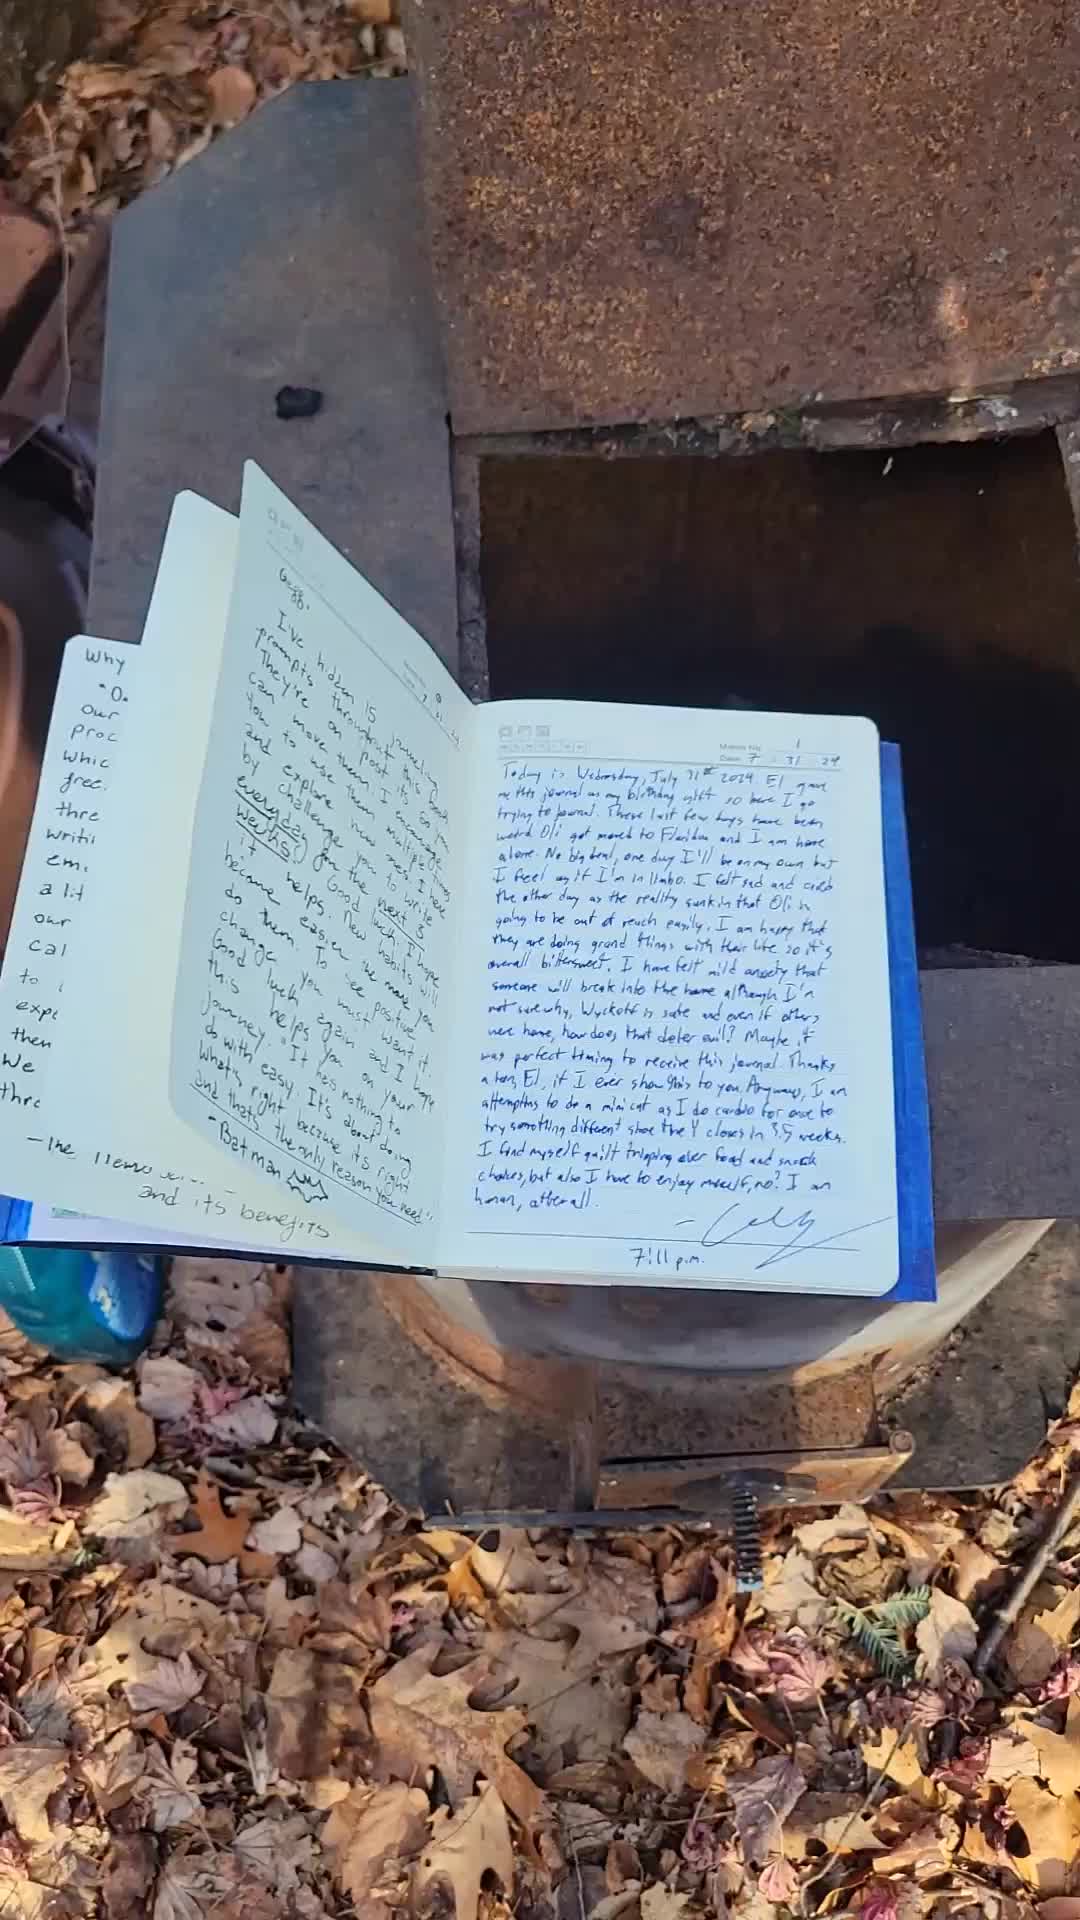 Why
"O
our
proc
whic
free.
thre
writi
em.
a lit
our
cal
to
expe
then
We
thro
and its benefits
I've hidden 15 journaling
prompts throughout this book
They're on post its so you
can move them. I encourage
you to use them multiple times
and explore new ones. I have
by challenge you to write
everyday for the next 3
weeks! Good luck. I hope
it helps. New habits will
become easier the more you
do them. To see positive
change you must want it.
Good luck again and I hope
this helps you on your
journey. "It has nothing to
do with easy. It's about doing
what's right because its right
and thats the only reason you need"
- Batman
Memo No. 1
Date 7 31 24
Today is Wednesday, July 31st 2024. El gave
me this journal as my birthday gift so here I go
trying to journal. These last few days have been
weird. Oli got moved to Florida and I am home
alone. No big deal, one day I'll be on my own but
I feel as if I'm in limbo. I felt sad and cried
the other day as the reality sunk in that Oli is
going to be out of reach easily. I am happy that
they are doing grand things with their life so it's
overall bittersweet. I have felt mild anxiety that
someone will break into the home although I'm
not sure why, Wyckoff is safe and even if others
were home, how does that deter evil? Maybe it
was perfect timing to receive this journal. Thanks
a ton, El, if I ever show this to you. Anyways, I am
attempting to do a mini cut as I do cardio for once to
try something different since the Y closes in 3.5 weeks.
I find myself guilt tripping over food and snack
choices, but also I have to enjoy myself, no? I am
human, after all.
7:11 p.m.